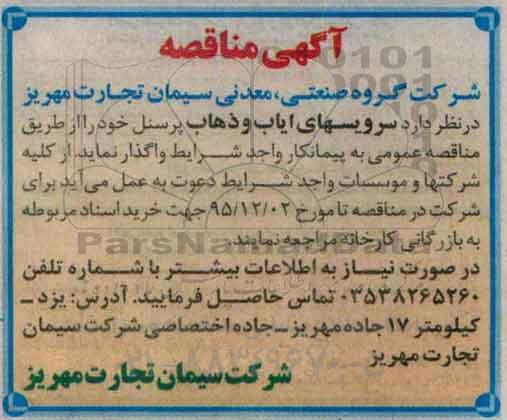 آگهی مناقصه
شرکت گروه صنعتی، معدنی سیمان تجارت مهریز
درنظر دارد سرویسهای ایاب و ذهاب پرسنل خود را از طریق
مناقصه عمومی به پیمانکار واجد شرایط واگذار نماید. از کلیه
شرکتها و موسسات واجد شرایط دعوت به عمل می آید برای
شرکت در مناقصه تا مورخ ۹۵/۱۲/۰۲ جهت خرید اسناد مربوطه
به بازرگانی کارخانه مراجعه نمایند.
ParsNamadData
در صورت نیاز به اطلاعات بیشتر با شماره تلفن
۰۳۵۳۸۲۶۵۲۶۰ تماس حاصل فرمایید. آدرس: یزد -
کیلومتر ۱۷ جاده مهریز - جاده اختصاصی شرکت سیمان
تجارت مهریز
شرکت سیمان تجارت مهریز